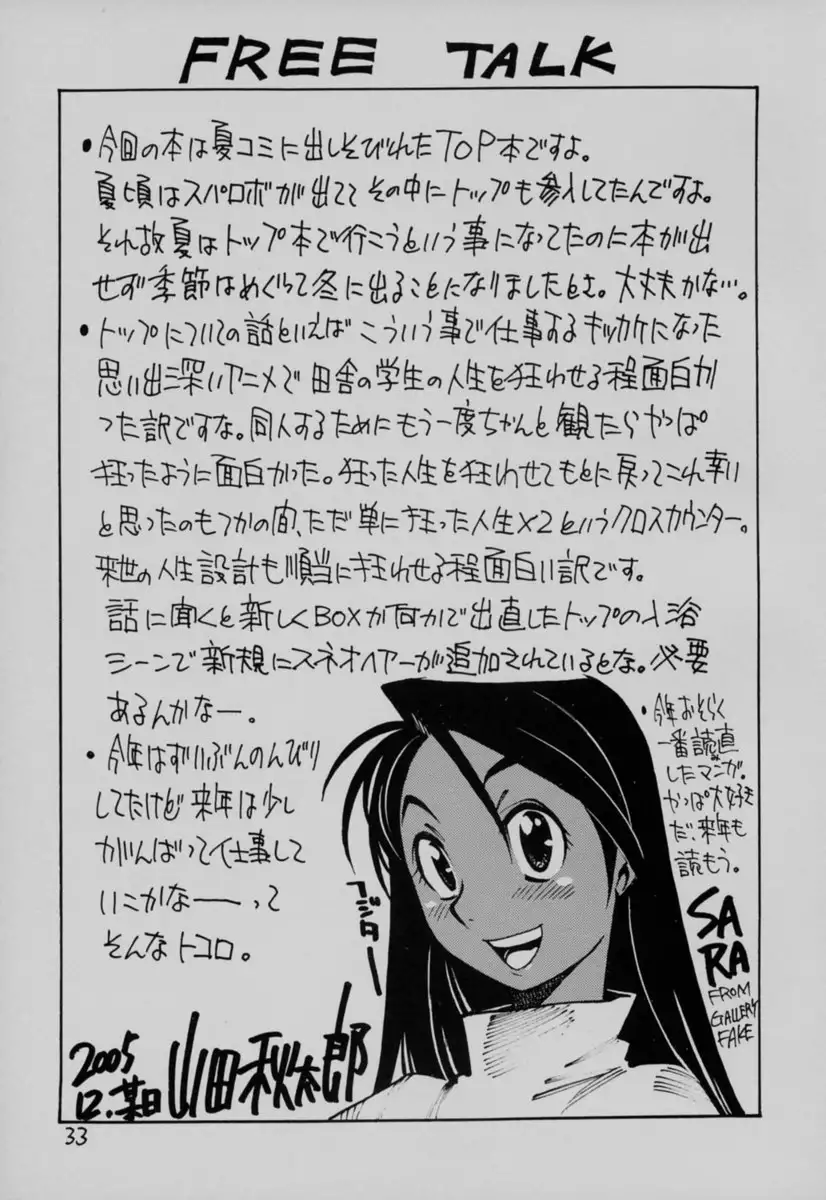 FREE TALK
・今回の本は夏コミに出しそびれたTOP本ですよ。
夏頃はスパロボが出てて その中にトップも参入してたんですよ。
それ故夏はトップ本で行こうという事になってたのに本が出
せず季節はめぐって冬に出ることになりましたとさ。大丈夫かな…。
・トップについての話といえば こういう事で仕事するキッカケになった
思い出深いアニメで 田舎の学生の人生を狂わせる程面白か
った訳ですな。同人するためにもう一度ちゃんと観たらやっぱ
狂ったように面白かった。狂った人生を狂わせてもとに戻ってこれ幸い
と思ったのもつかの間、ただ単に狂った人生×2というクロスカウンター。
来世の人生設計も順当に狂わせる程面白い訳です。
話に聞くと新しくBOXか何かで出直したトップの入浴
シーンで新規にスネオヘアーが追加されているとな。必要
あるんかなー。
・今年はずいぶんのんびり
してたけど来年は少し
がんばって仕事して
いこかなーーって
そんなトコロ。
・今年おそらく
一番読み直
したマンガ。
やっぱ大好き
だ、来年も
読もう。
SA
RA
FROM
GALLERY
FAKE
アジター
2005
12.某日 山田秋太郎
33